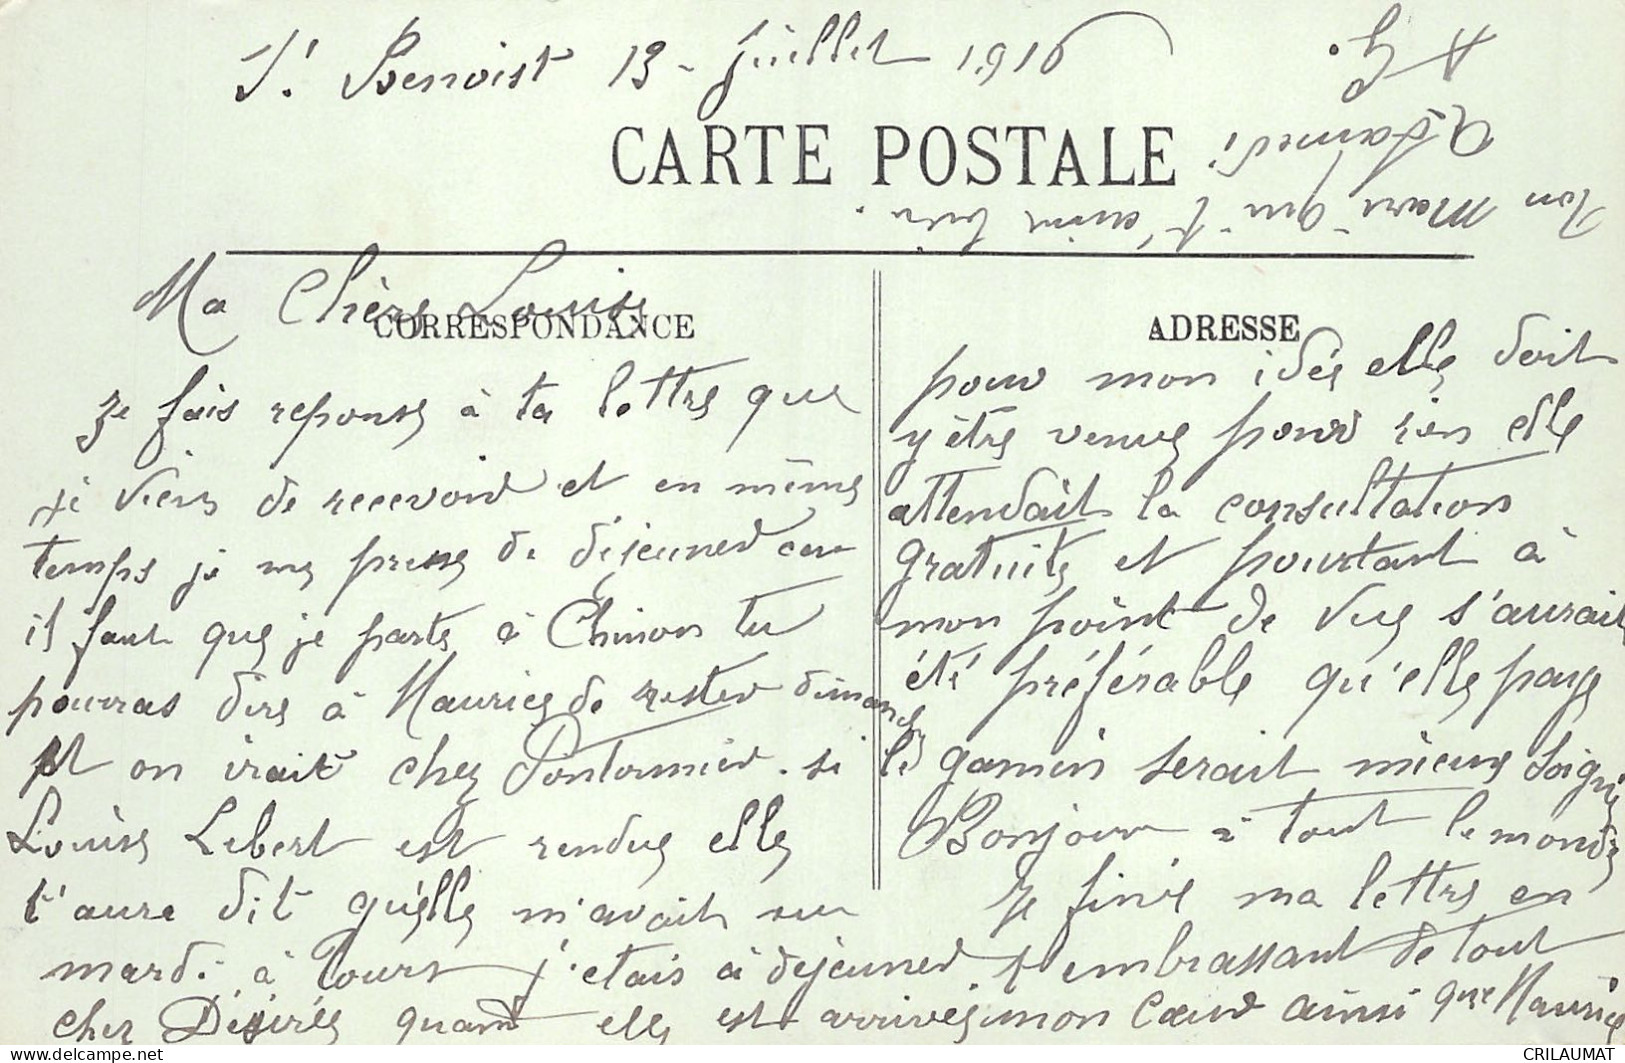 St Benoist 13 - Juillet 1916
CARTE POSTALE
CORRESPONDANCE
ADRESSE
Ma Chère Louise
je fais reponse à ta lettre que
je viens de recevoir et en même
temps je me presse de déjeuner car
il faut que je parte à Chinon tu
pourras dire à Maurice de rester dimanche
et on irait chez Pontonnier. si
Louise Lebert est rendue elle
t'aura dit qu'elle m'avait vu
mardi à Tours j'etais à dejeuner
chez Désirée quand elle est arrivée
pour mon idée elle doit
y être venue pour rien elle
attendait la consultation
gratuite et pourtant à
mon point de vue s'aurait
été préférable qu'elle paye
le gamin serait mieux soigné
Bonjour à tout le monde
je finie ma lettre en
t embrassant de tout
mon cœur ainsi que Maurice
Ton Mari qui t'aime bien.
A Samedi
A G.
CRILAUMAT